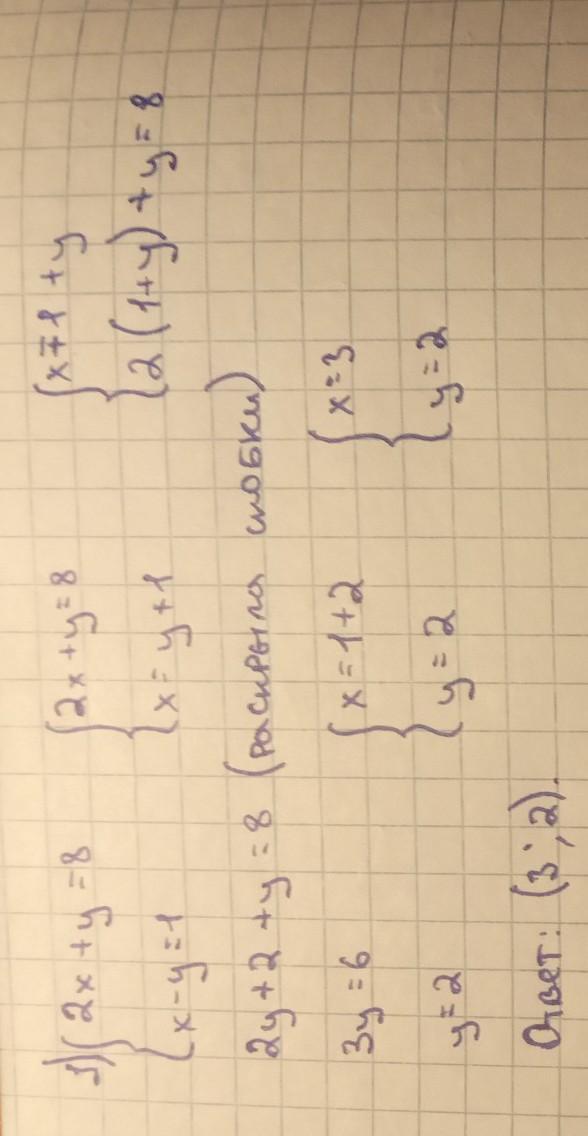 1) { 2x + y = 8 { 2x + y = 8 { x = 1 + y
{ x - y = 1 { x = y + 1 { 2(1+y) + y = 8
2y + 2 + y = 8 (раскрыла скобки)
3y = 6 { x = 1 + 2 { x = 3
y = 2 { y = 2 { y = 2
Ответ: (3; 2).